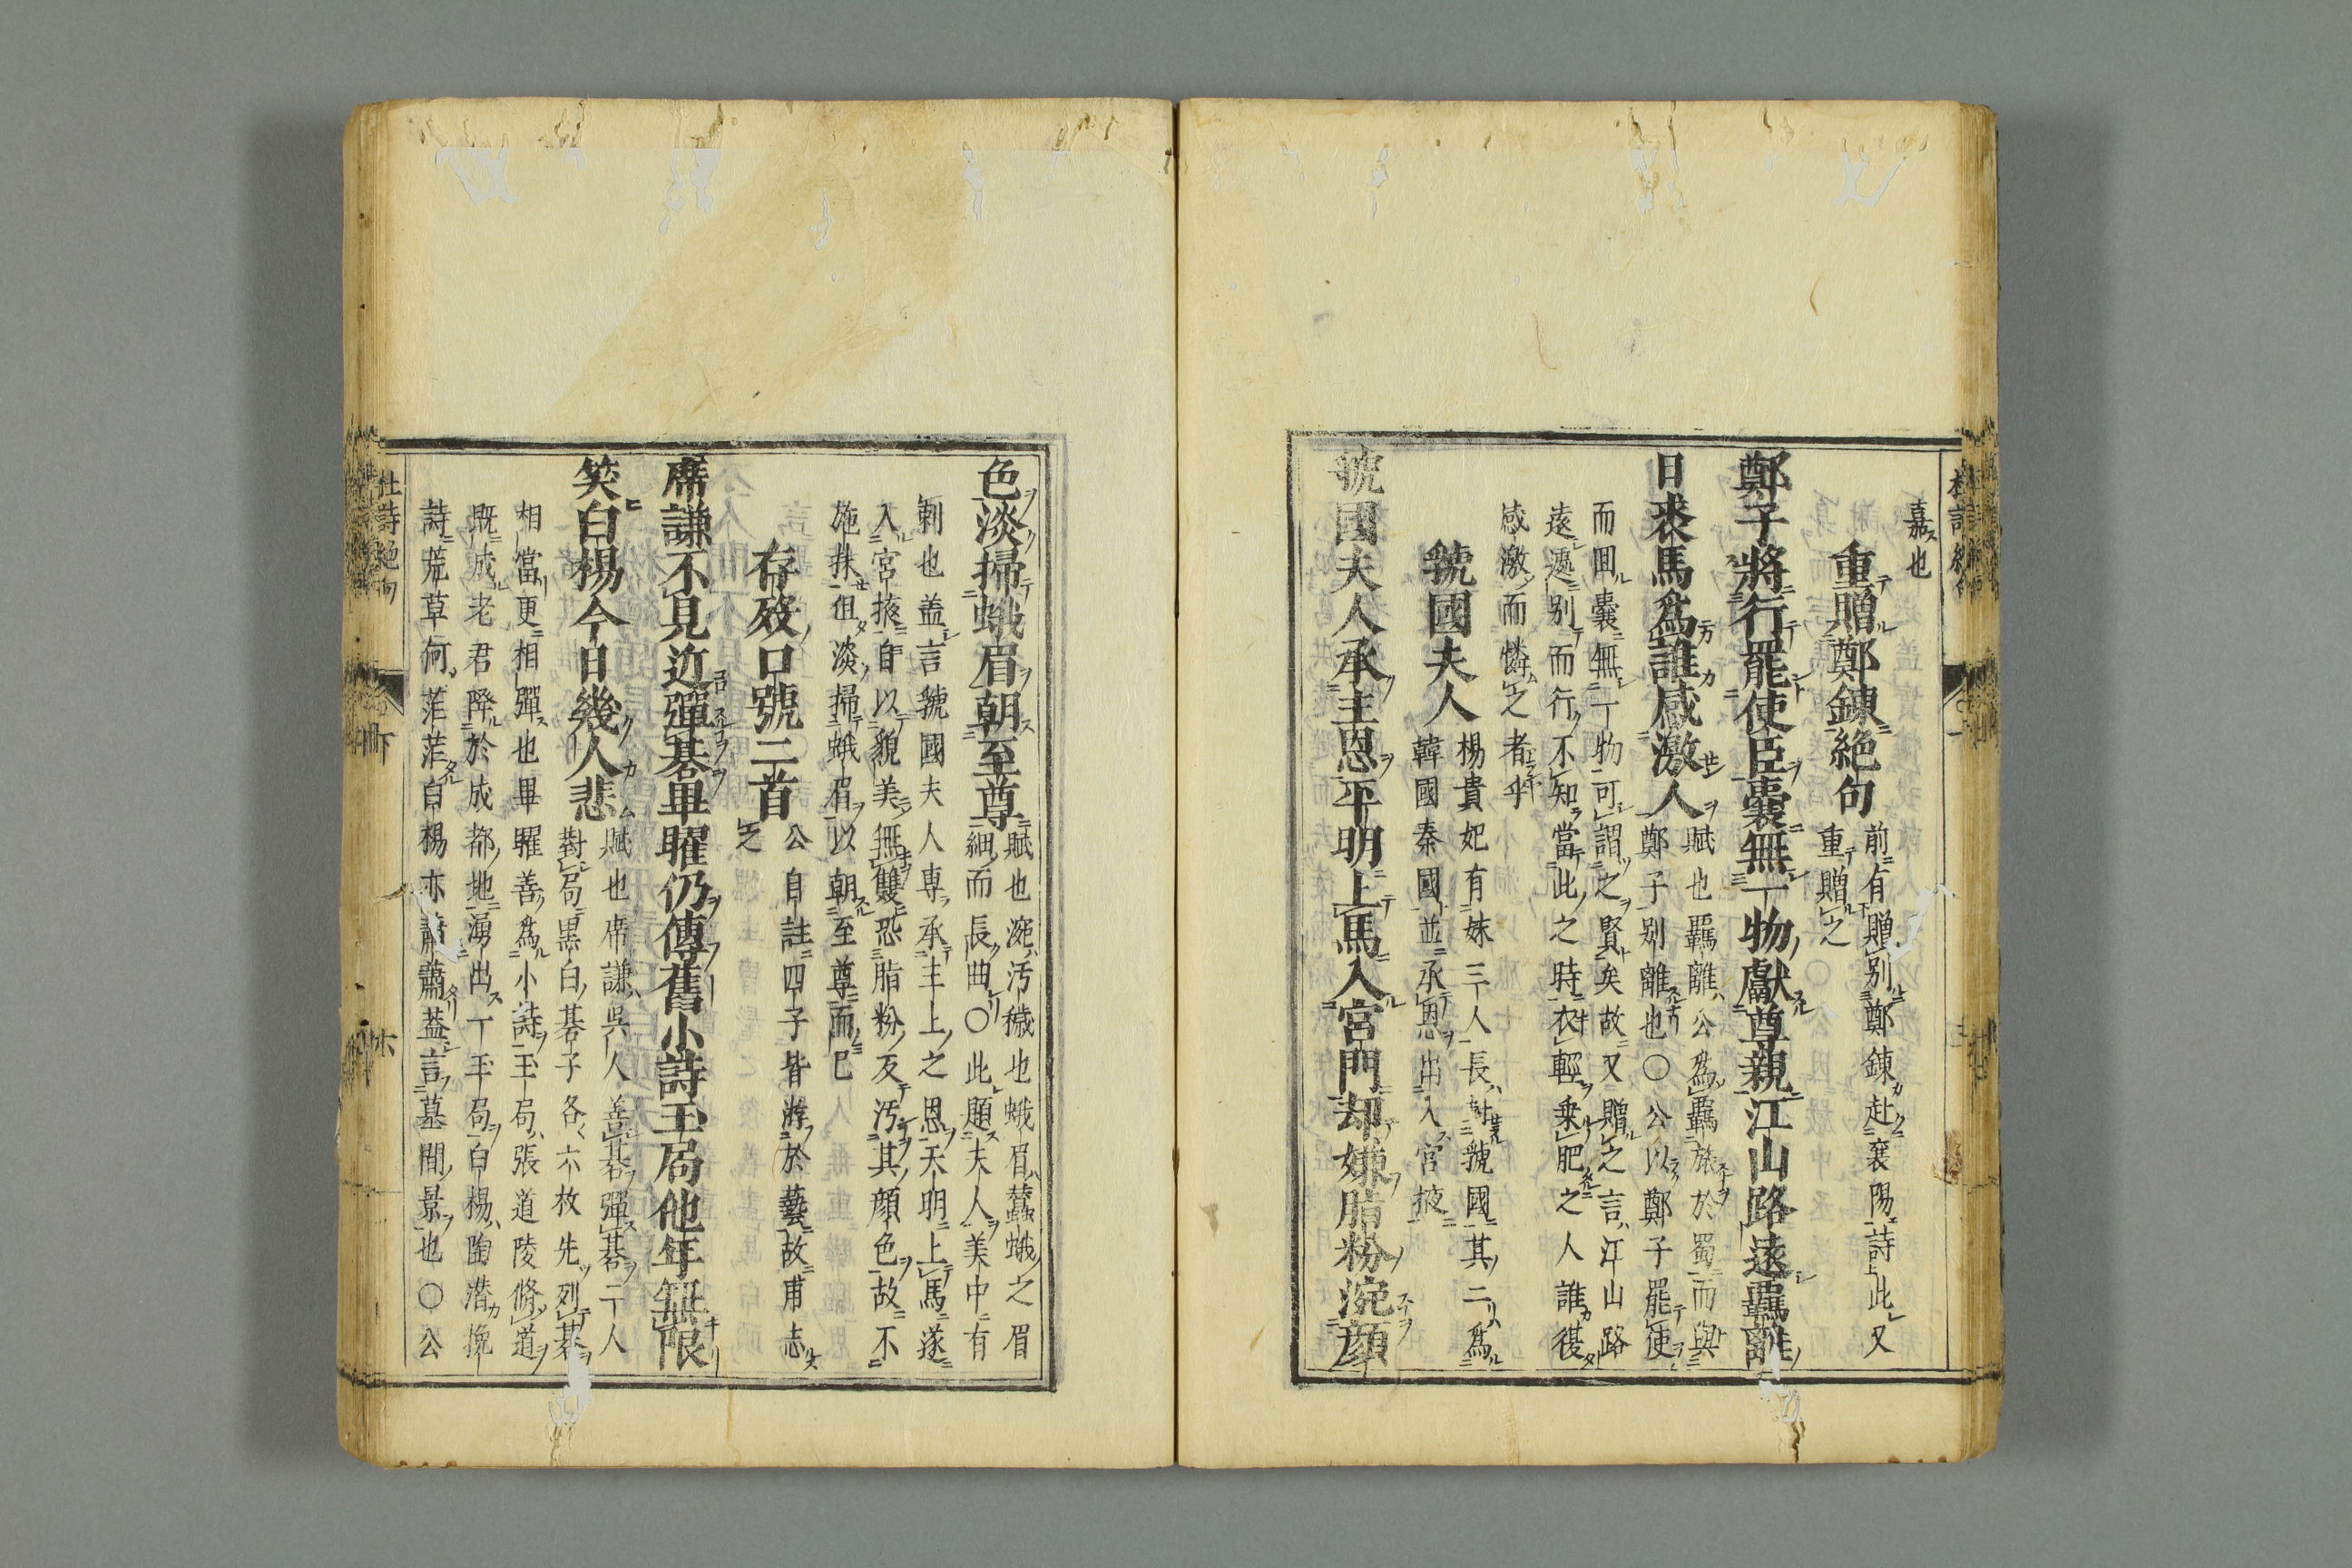 嘉也
重贈鄭錬絶句
前有贈別鄭錬赴襄陽詩此又
重贈之
鄭子將行罷使臣囊無一物獻尊親江山路遠羈離
日裘馬爲誰感激人
賦也羈離公爲羈旅於蜀而與
鄭子別離也〇公以鄭子罷使
而囬囊無一物可謂之賢矣故又贈之言江山路
遠遞別而行不知當此之時衣輕乗肥之人誰復
感激而憐之者乎
虢國夫人
楊貴妃有妹三人長封虢國其二爲
韓國秦國並承恩出入宮掖
虢國夫人承主恩平明上馬入宮門却嫌脂粉涴顔
色淡掃蛾眉朝至尊
賦也涴汚穢也蛾眉蠶蛾之眉
細而長曲〇此題夫人美中有
剌也盖言虢國夫人専承主上之恩天明上馬遂
入宮掖自以貌美無雙恐脂粉反汚其顔色故不
施抹但淡掃蛾眉以朝至尊而已
存歿口號二首
公自註四子皆游於藝故甫志
之
席謙不見近彈碁畢曜仍傳舊小詩玉局他年無限
笑白楊今日幾人悲
賦也席謙呉人善碁彈碁二人
對局黒白碁子各六枚先列碁
相當更相彈也畢曜善爲小詩玉局張道陵脩道
既成老君降於成都地湧出一玉局白楊陶潜挽
詩荒草何茫茫白楊亦蕭蕭盖言墓間景也〇公
杜詩絶句
下
六